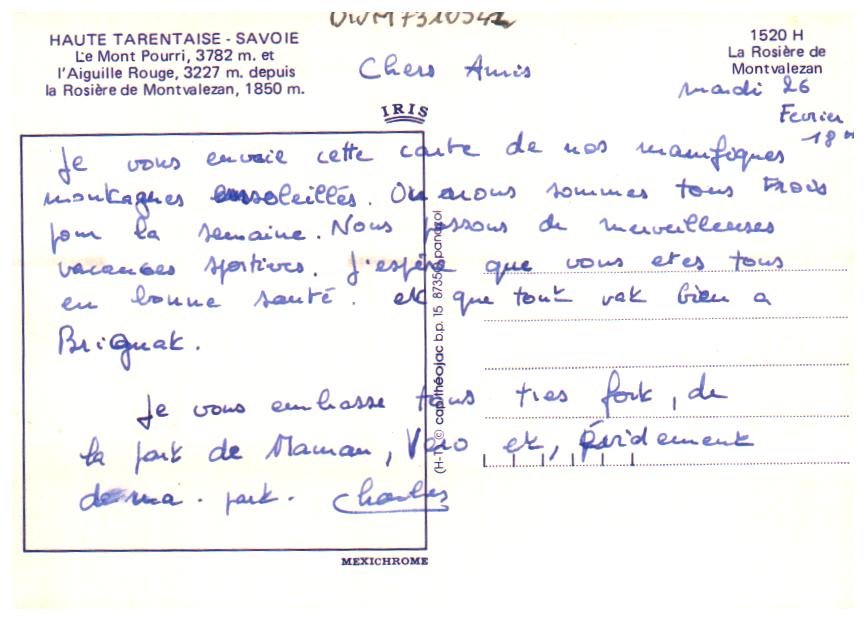 HAUTE TARENTAISE - SAVOIE
Le Mont Pourri, 3782 m. et
l'Aiguille Rouge, 3227 m. depuis
la Rosière de Montvalezan, 1850 m.
1520 H
La Rosière de
Montvalezan
Chers Amis
mardi 26
Fevrier
IRIS
Je vous envoie cette carte de nos manifiques
montagnes ensoleillés. Ou nous sommes tous trois
pour la semaine. Nous passons de merveilleuses
vacances sportives. J'espère que vous etes tous
en bonne santé. et que tout vat bien a
Brignat.
Je vous embrasse tous tres fort, de
la part de Maman, Vero et, évidement
de ma. part. Charles
cap-théojac b.p. 15 87350 panazol
MEXICHROME